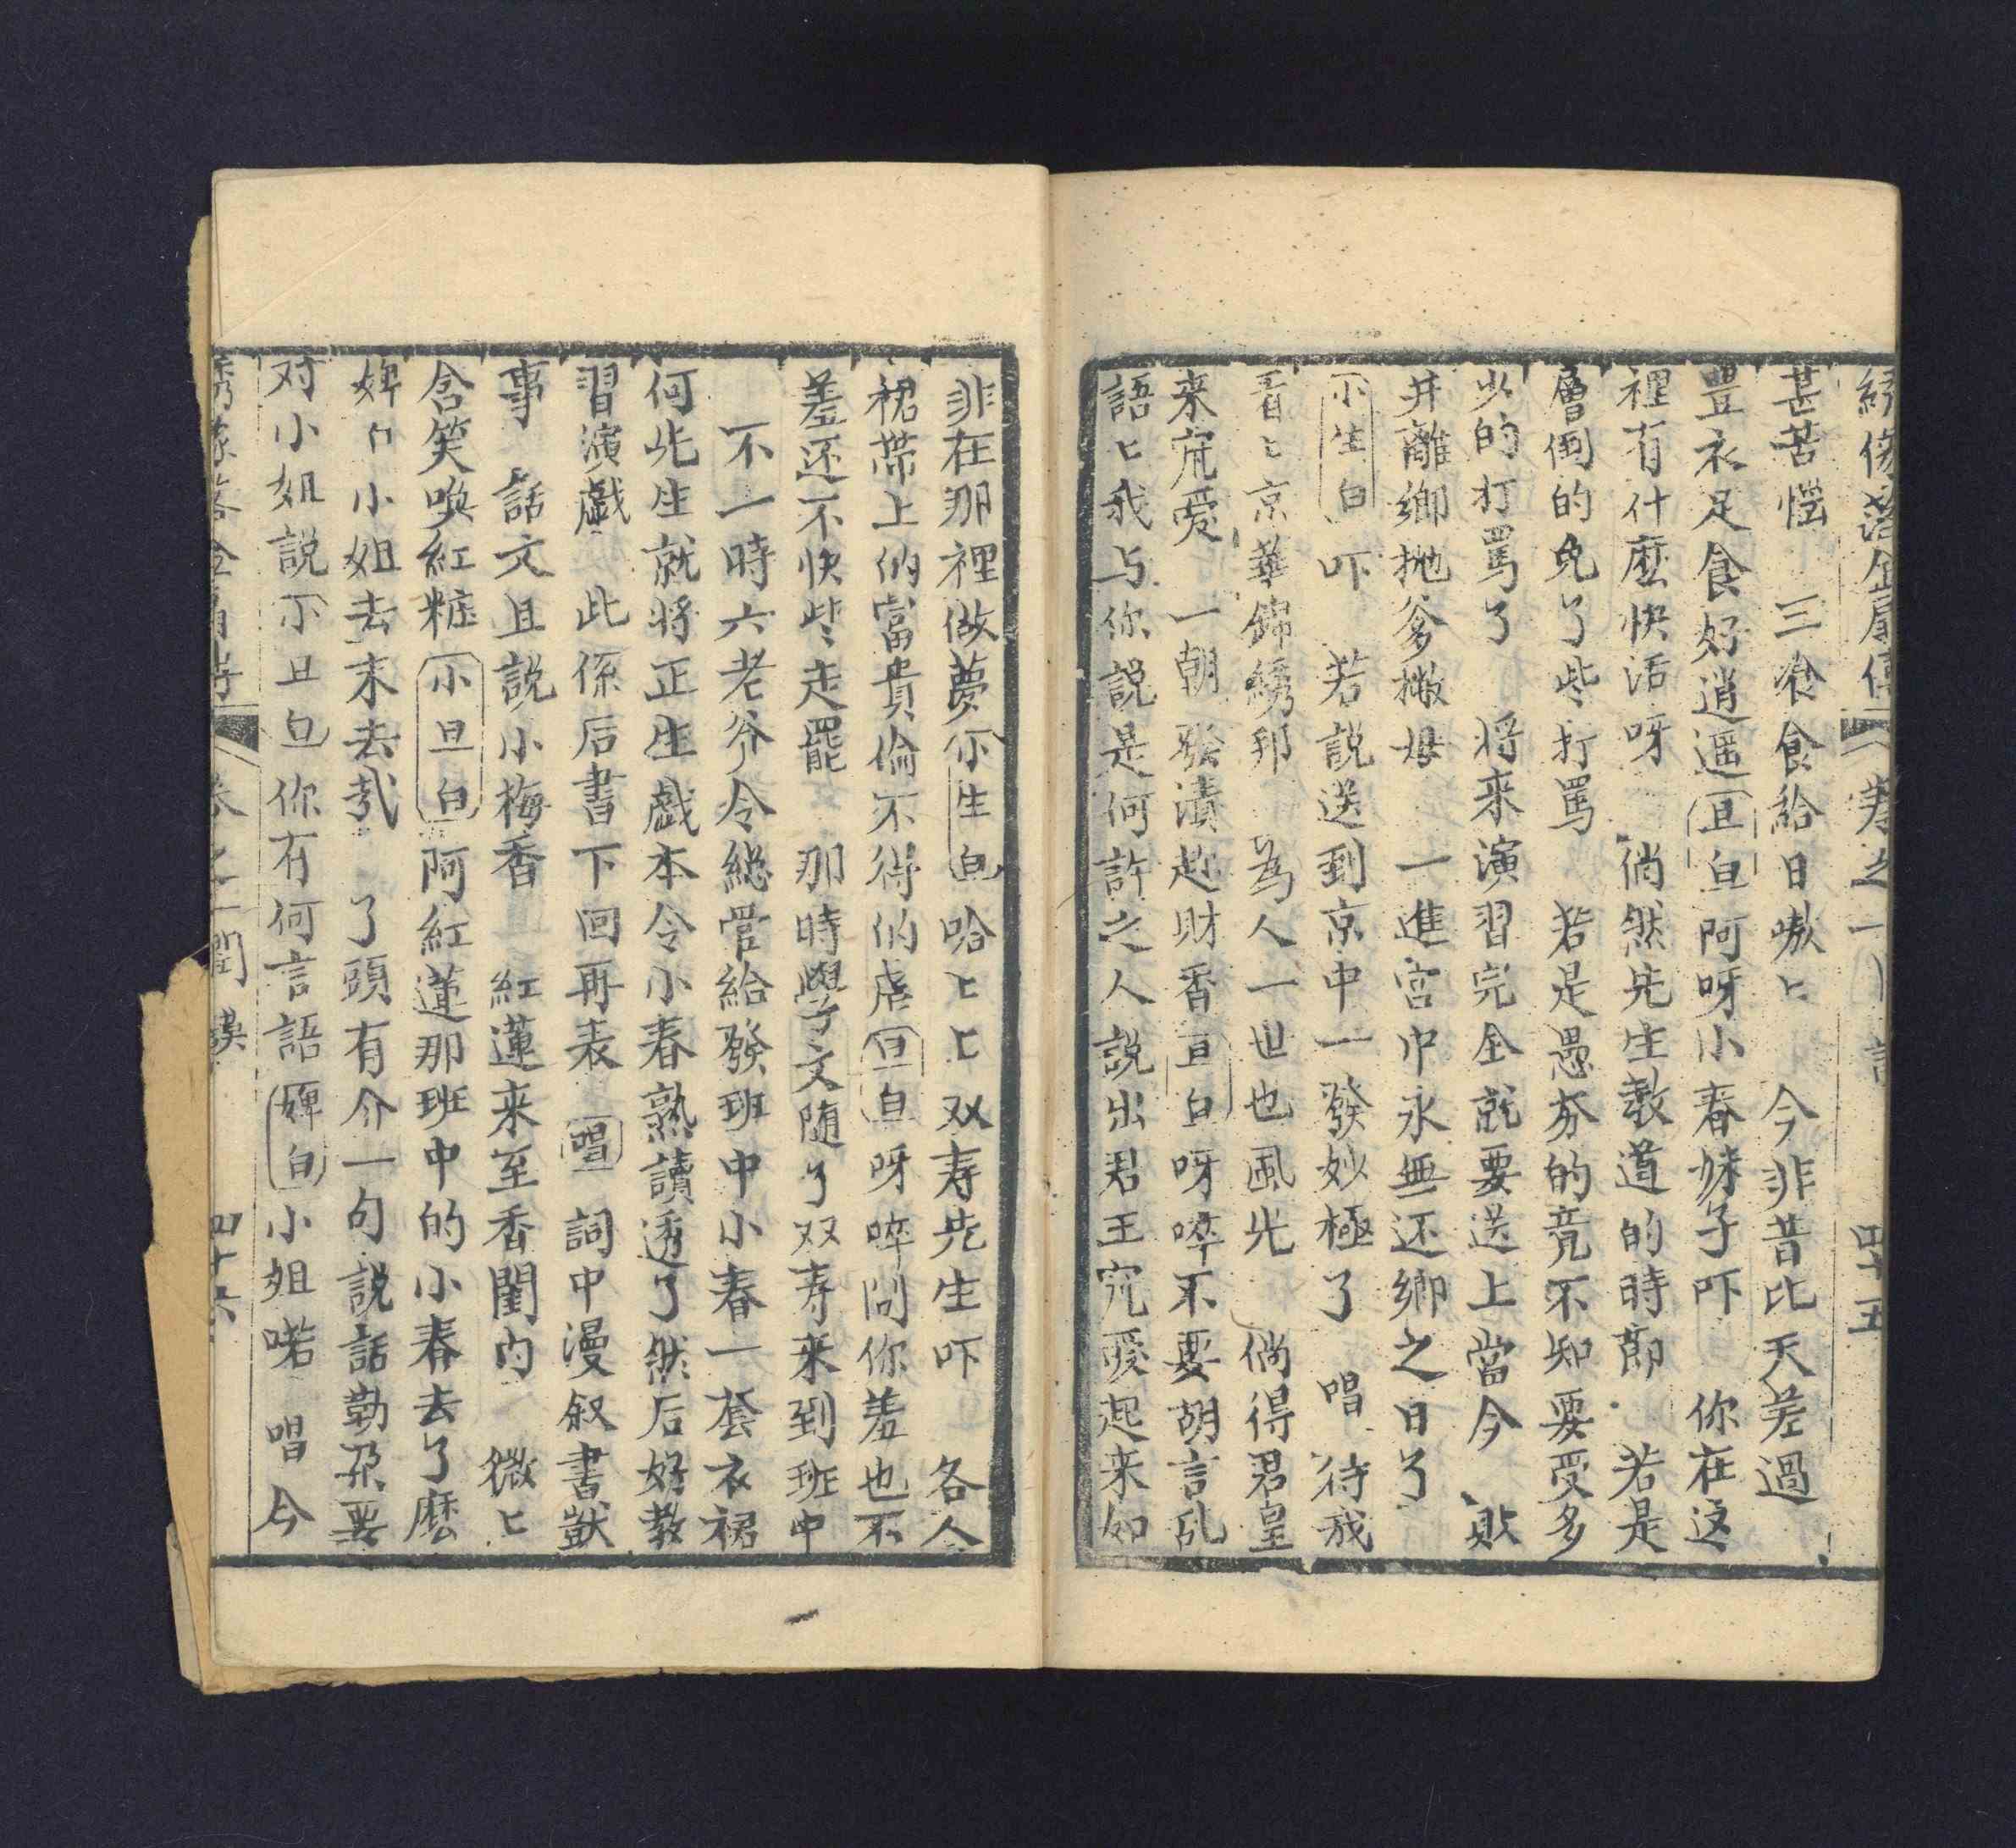 綉像落金扇傳 卷之一 四十五
甚苦惱 三飡食給日嗷〻 今非昔比天差過
豊衣足食好逍遥 旦白 阿呀小春妹子吓 你在这
裡有什麽快活呀 倘然先生教道的時節 若是
層倒的免了些打罵 若是愚夯的竟不知要受多
少的打罵了 将来演習完全就要送上當今
井離鄉抛爹撇母 一進宮中永無还鄉之日了
小生白 吓 若說送到京中一發妙極了 唱 待我
看〻京華錦綉邦 為人一世也風光 倘得君皇
来寵愛 一朝發漬起財香 旦白 呀啐不要胡言乱
語〻我与你說是何許之人說出君王寵愛起来如
非在那裡做夢 小生白 哈〻〻双寿先生吓 各人
裙帶上的富貴倫不得的虐 旦白 呀啐问你羞也不
羞还不快些走罷 那時學文随了双寿来到班中
不一時六老爷令総管給發班中小春一套衣裙
何先生就将正生戲本令小春熟讀透了然后好教
習演戲 此係后書下回再表 唱 詞中漫叙書獃
事 話文且說小梅香 紅蓮来至香閨内 微〻
含笑喚紅粧 小旦白 阿紅蓮那班中的小春去了麽
婢白 小姐去末去哉 了頭有介一句說話勒朶要
对小姐說 小旦白 你有何言語 婢白 小姐喏 唱 今
綉像落金扇傳 卷之一 閨謨 四十六